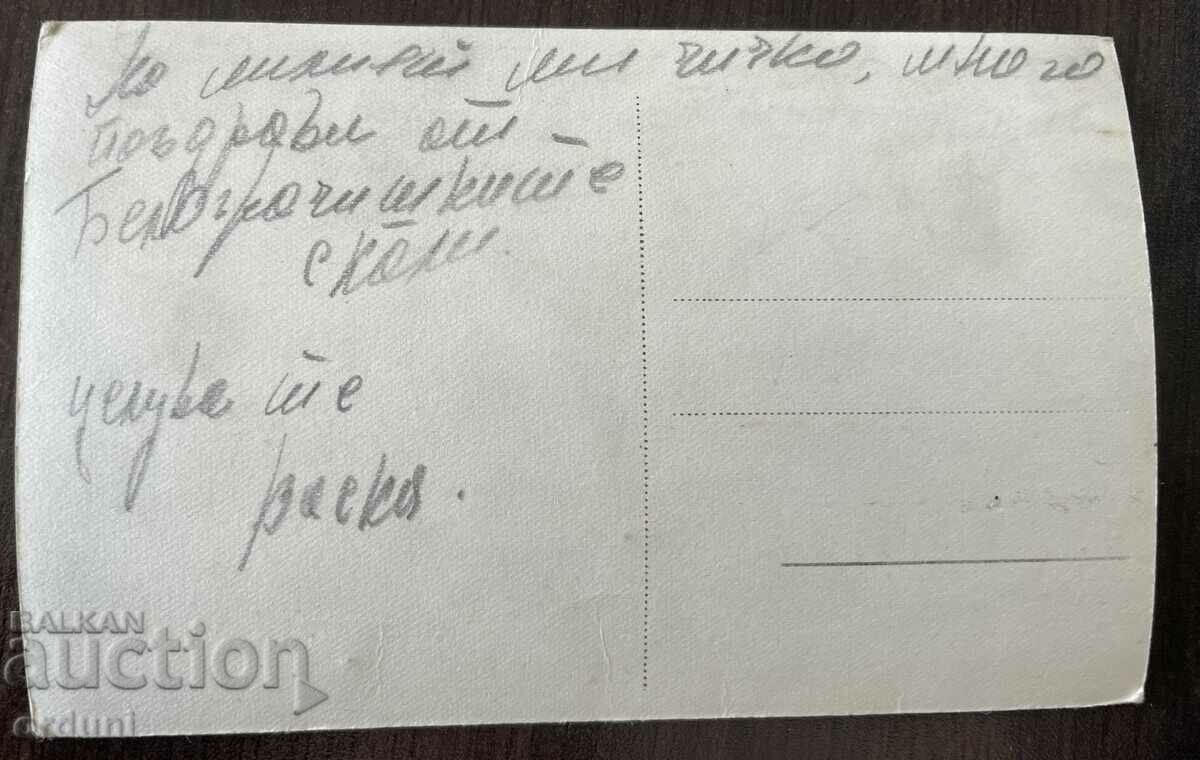 милият ми чичко, много
поздрави от
Белограчишките
скали.
целува те
Васка.
BALKAN
auction
arduni